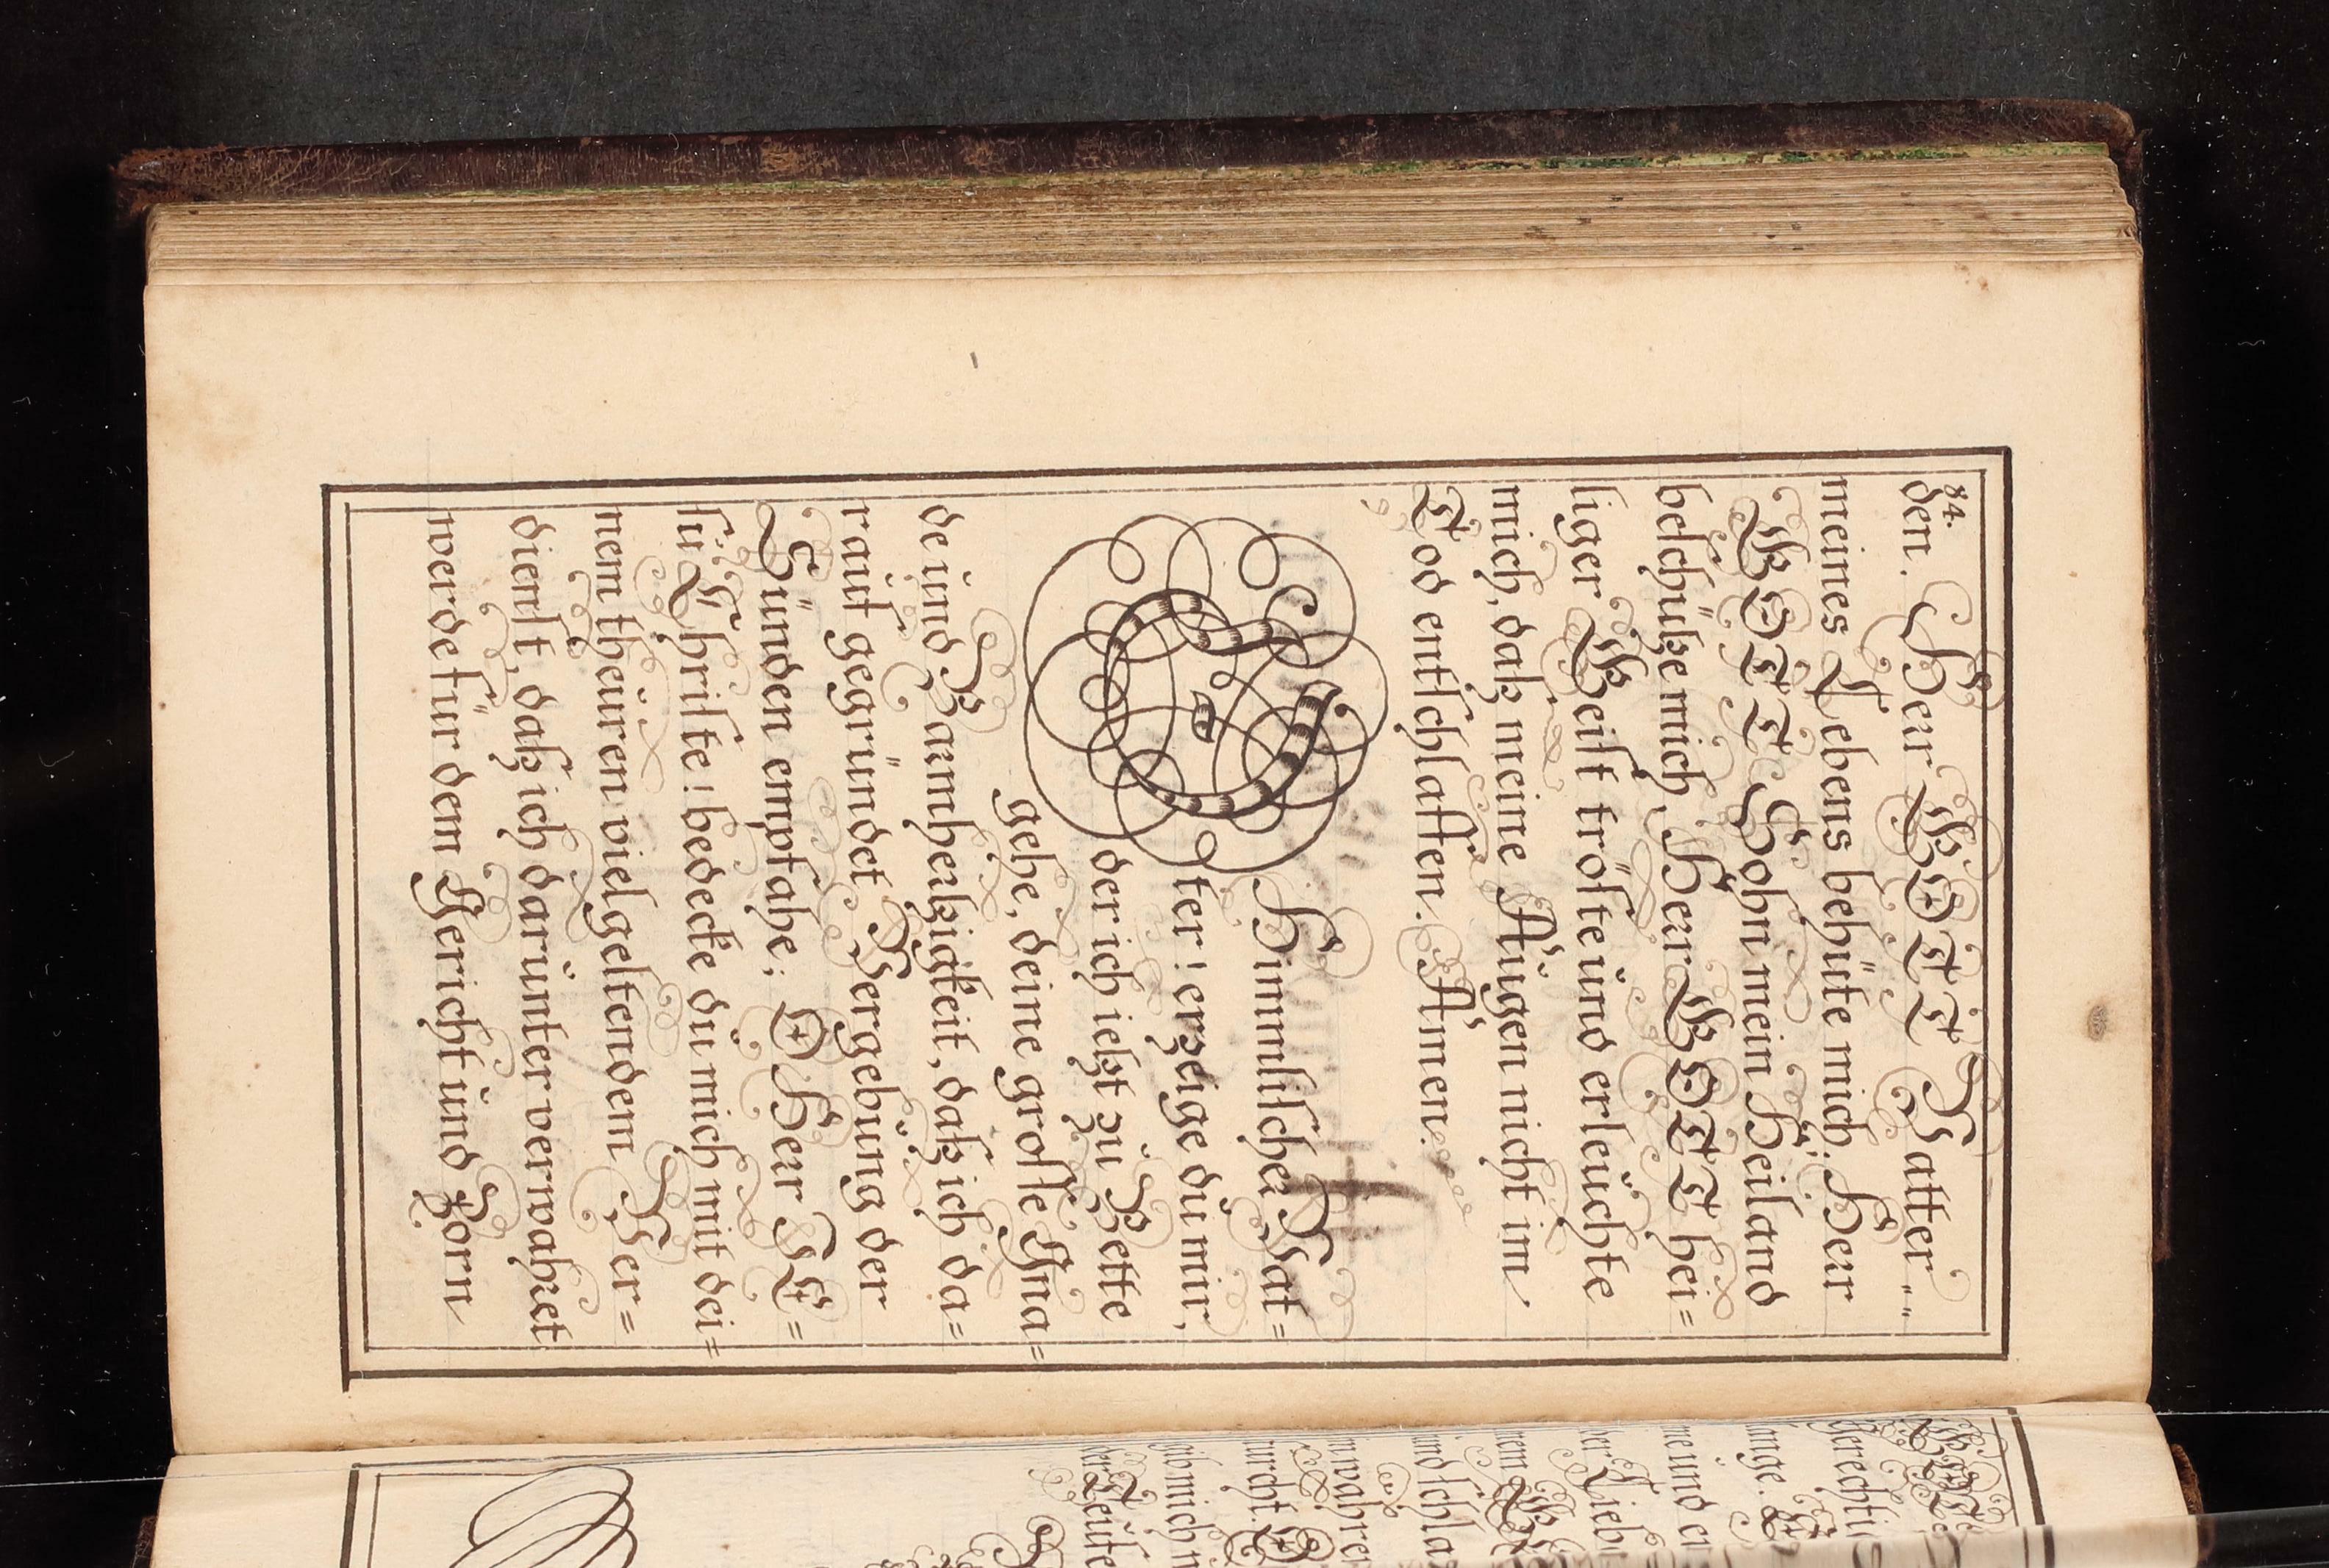 84.
den. Herr GOTT Vatter
meines Lebens behüte mich. Herr
GOTT Sohn mein Heiland
beschütze mich, Herr GOTT hei=
liger Geist tröste und erleuchte
mich, daß meine Augen nicht im
Tod entschlaffen. Amen.
Himmlischer Vat=
ter! erzeige du mir,
der ich ietzt zu Bette
gehe, deine grosse Gna=
de und Barmhertzigkeit, daß ich da=
rauf gegründet Vergebung der
Sünden empfahe; O Herr JE=
su Christe! bedecke du mich mit dei=
nem theuren vielgeltendem Ver=
dienst, daß ich darunter verwahret
werde für dem Gericht und Zorn
gerechti
me und er
und schla
wahren
gib mich